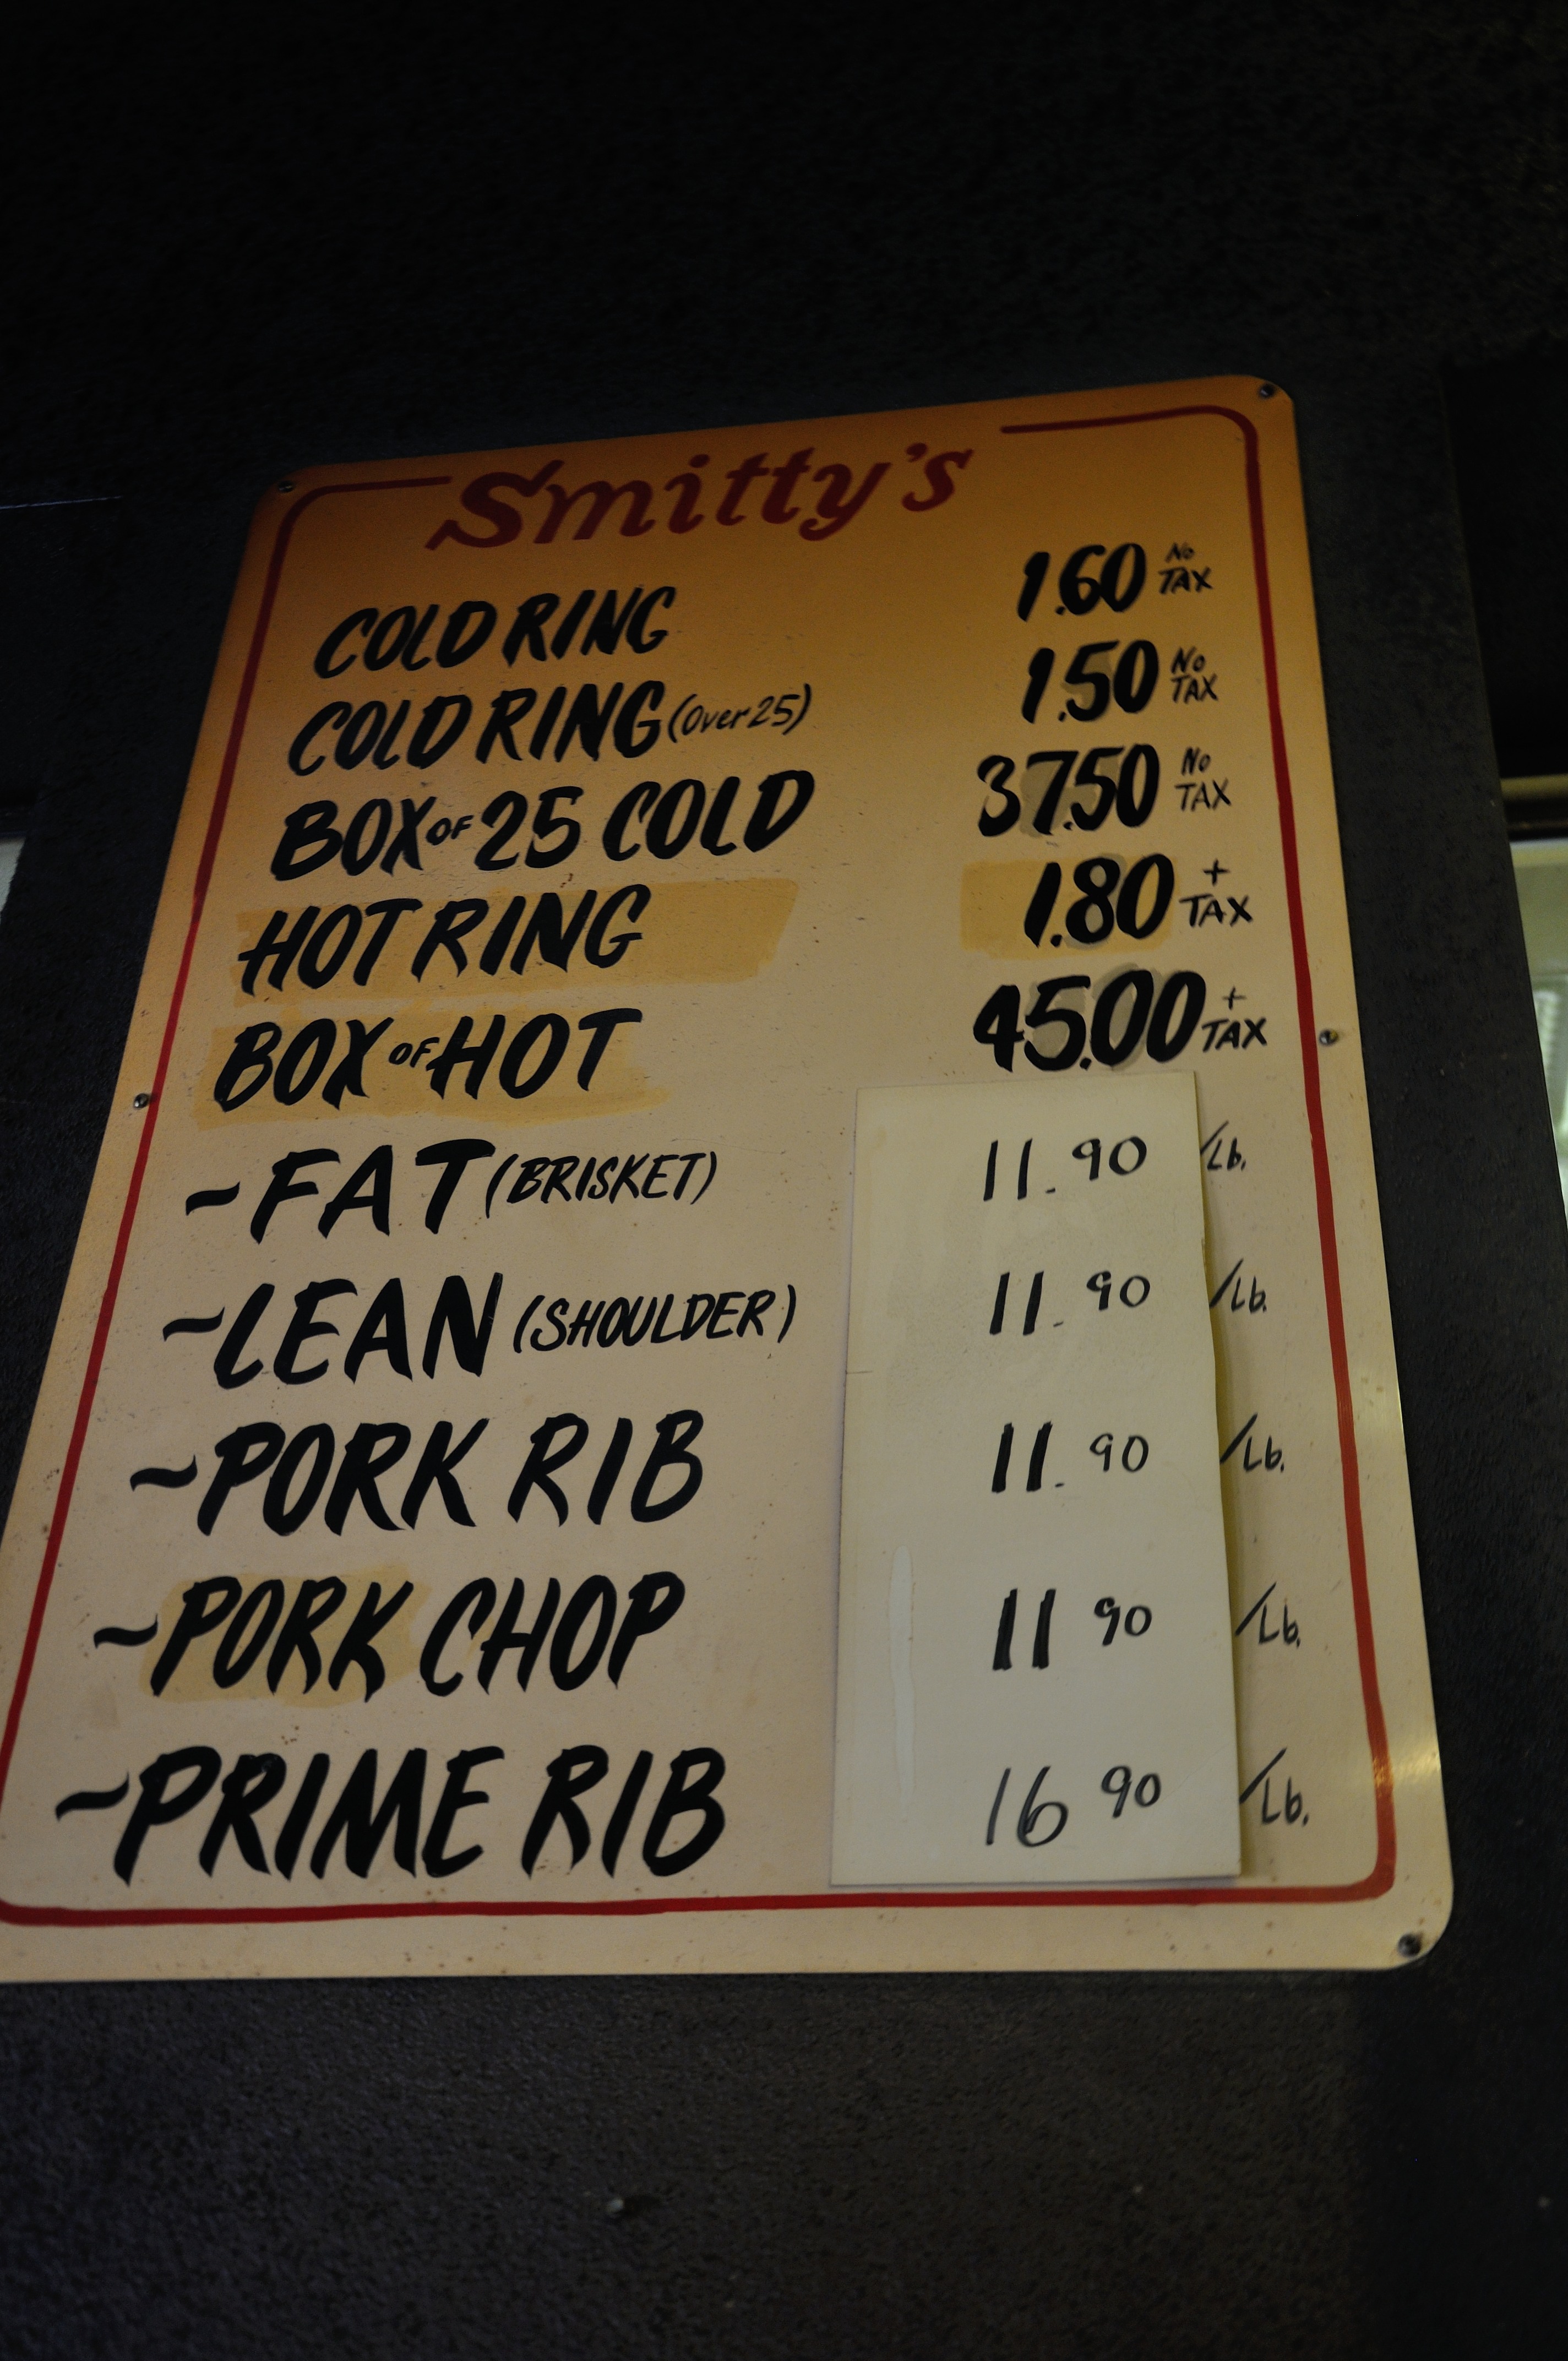 Smitty's
COLD RING 1.60 No TAX
COLD RING (Over 25) 1.50 No TAX
BOX OF 25 COLD 37.50 No TAX
HOT RING 1.80 + TAX
BOX OF HOT 45.00 + TAX
~FAT (BRISKET) 11.90 /Lb.
~LEAN (SHOULDER) 11.90 /Lb.
~PORK RIB 11.90 /Lb.
~PORK CHOP 11 90 /Lb.
~PRIME RIB 16 90 /Lb.